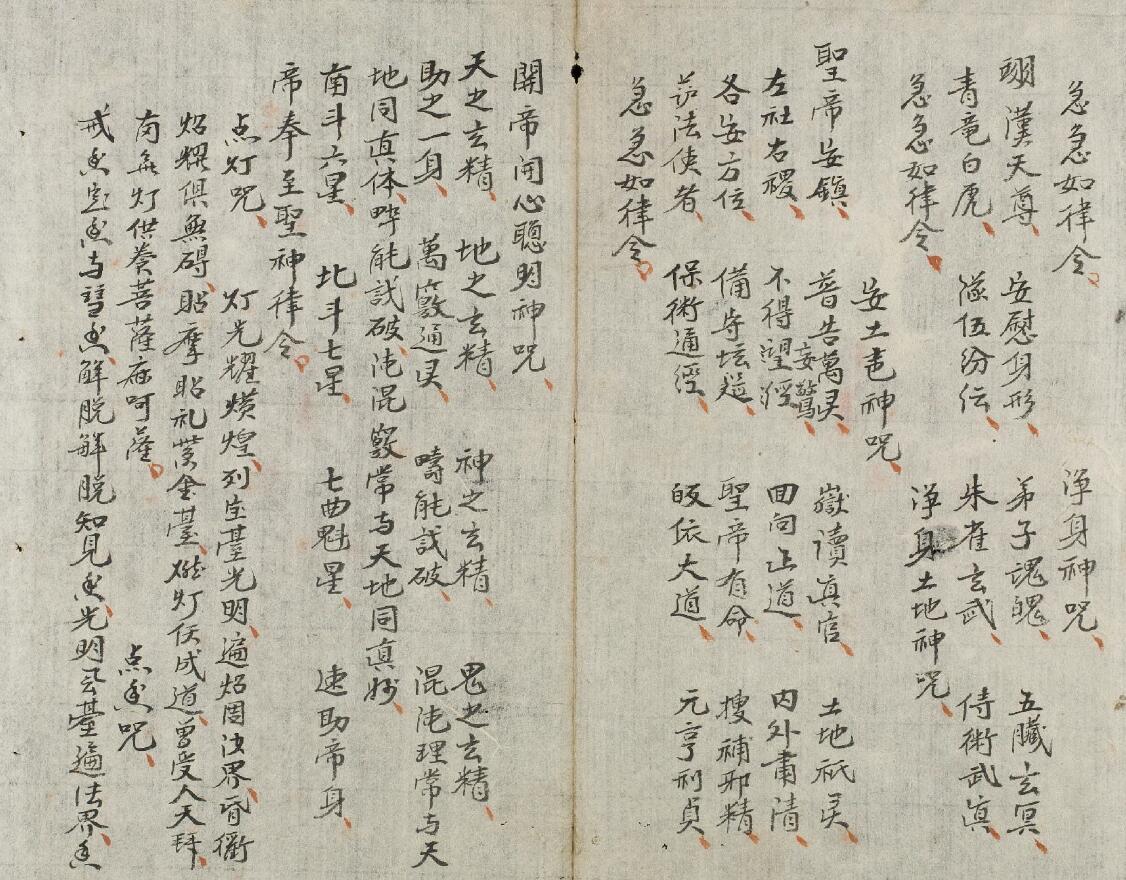 急急如律令 浄身神咒
翊漢天尊 安慰身形 弟子魂魄 五臟玄冥
青竜白虎 隊伍紛伝 朱雀玄武 侍衛武真
急急如律令 浄身土地神咒
安土地神咒
聖帝安鎮 普告萬灵 嶽讀真官 土地祇灵
左社右稷 不得妄驚 回向正道 内外肅清
各安方位 備守坛莚 聖帝有命 搜補邪精
茆法使者 保術通經 皈依大道 元亨利貞
急急如律令
開帝開心聰明神咒
天之玄精 地之玄精 神之玄精 鬼之玄精
助之一身 萬竅通灵 疇能識破 混沌理常与天
地同真体 疇能識破 沌混竅常与天地同真妙
南斗六星 北斗七星 七曲魁星 速助帝身
帝奉至聖神律令
点灯咒 灯光耀熿煌 列宝臺光明 遍炤周沙界 昏衢
炤耀俱無碍 貼摩貼礼黃金臺 燃灯仸成道 曽受人天拜
南無灯供養菩薩麻呵薩 点香咒
戒香定香与慧香 解脱解脱知見香 光明云臺遍法界 香